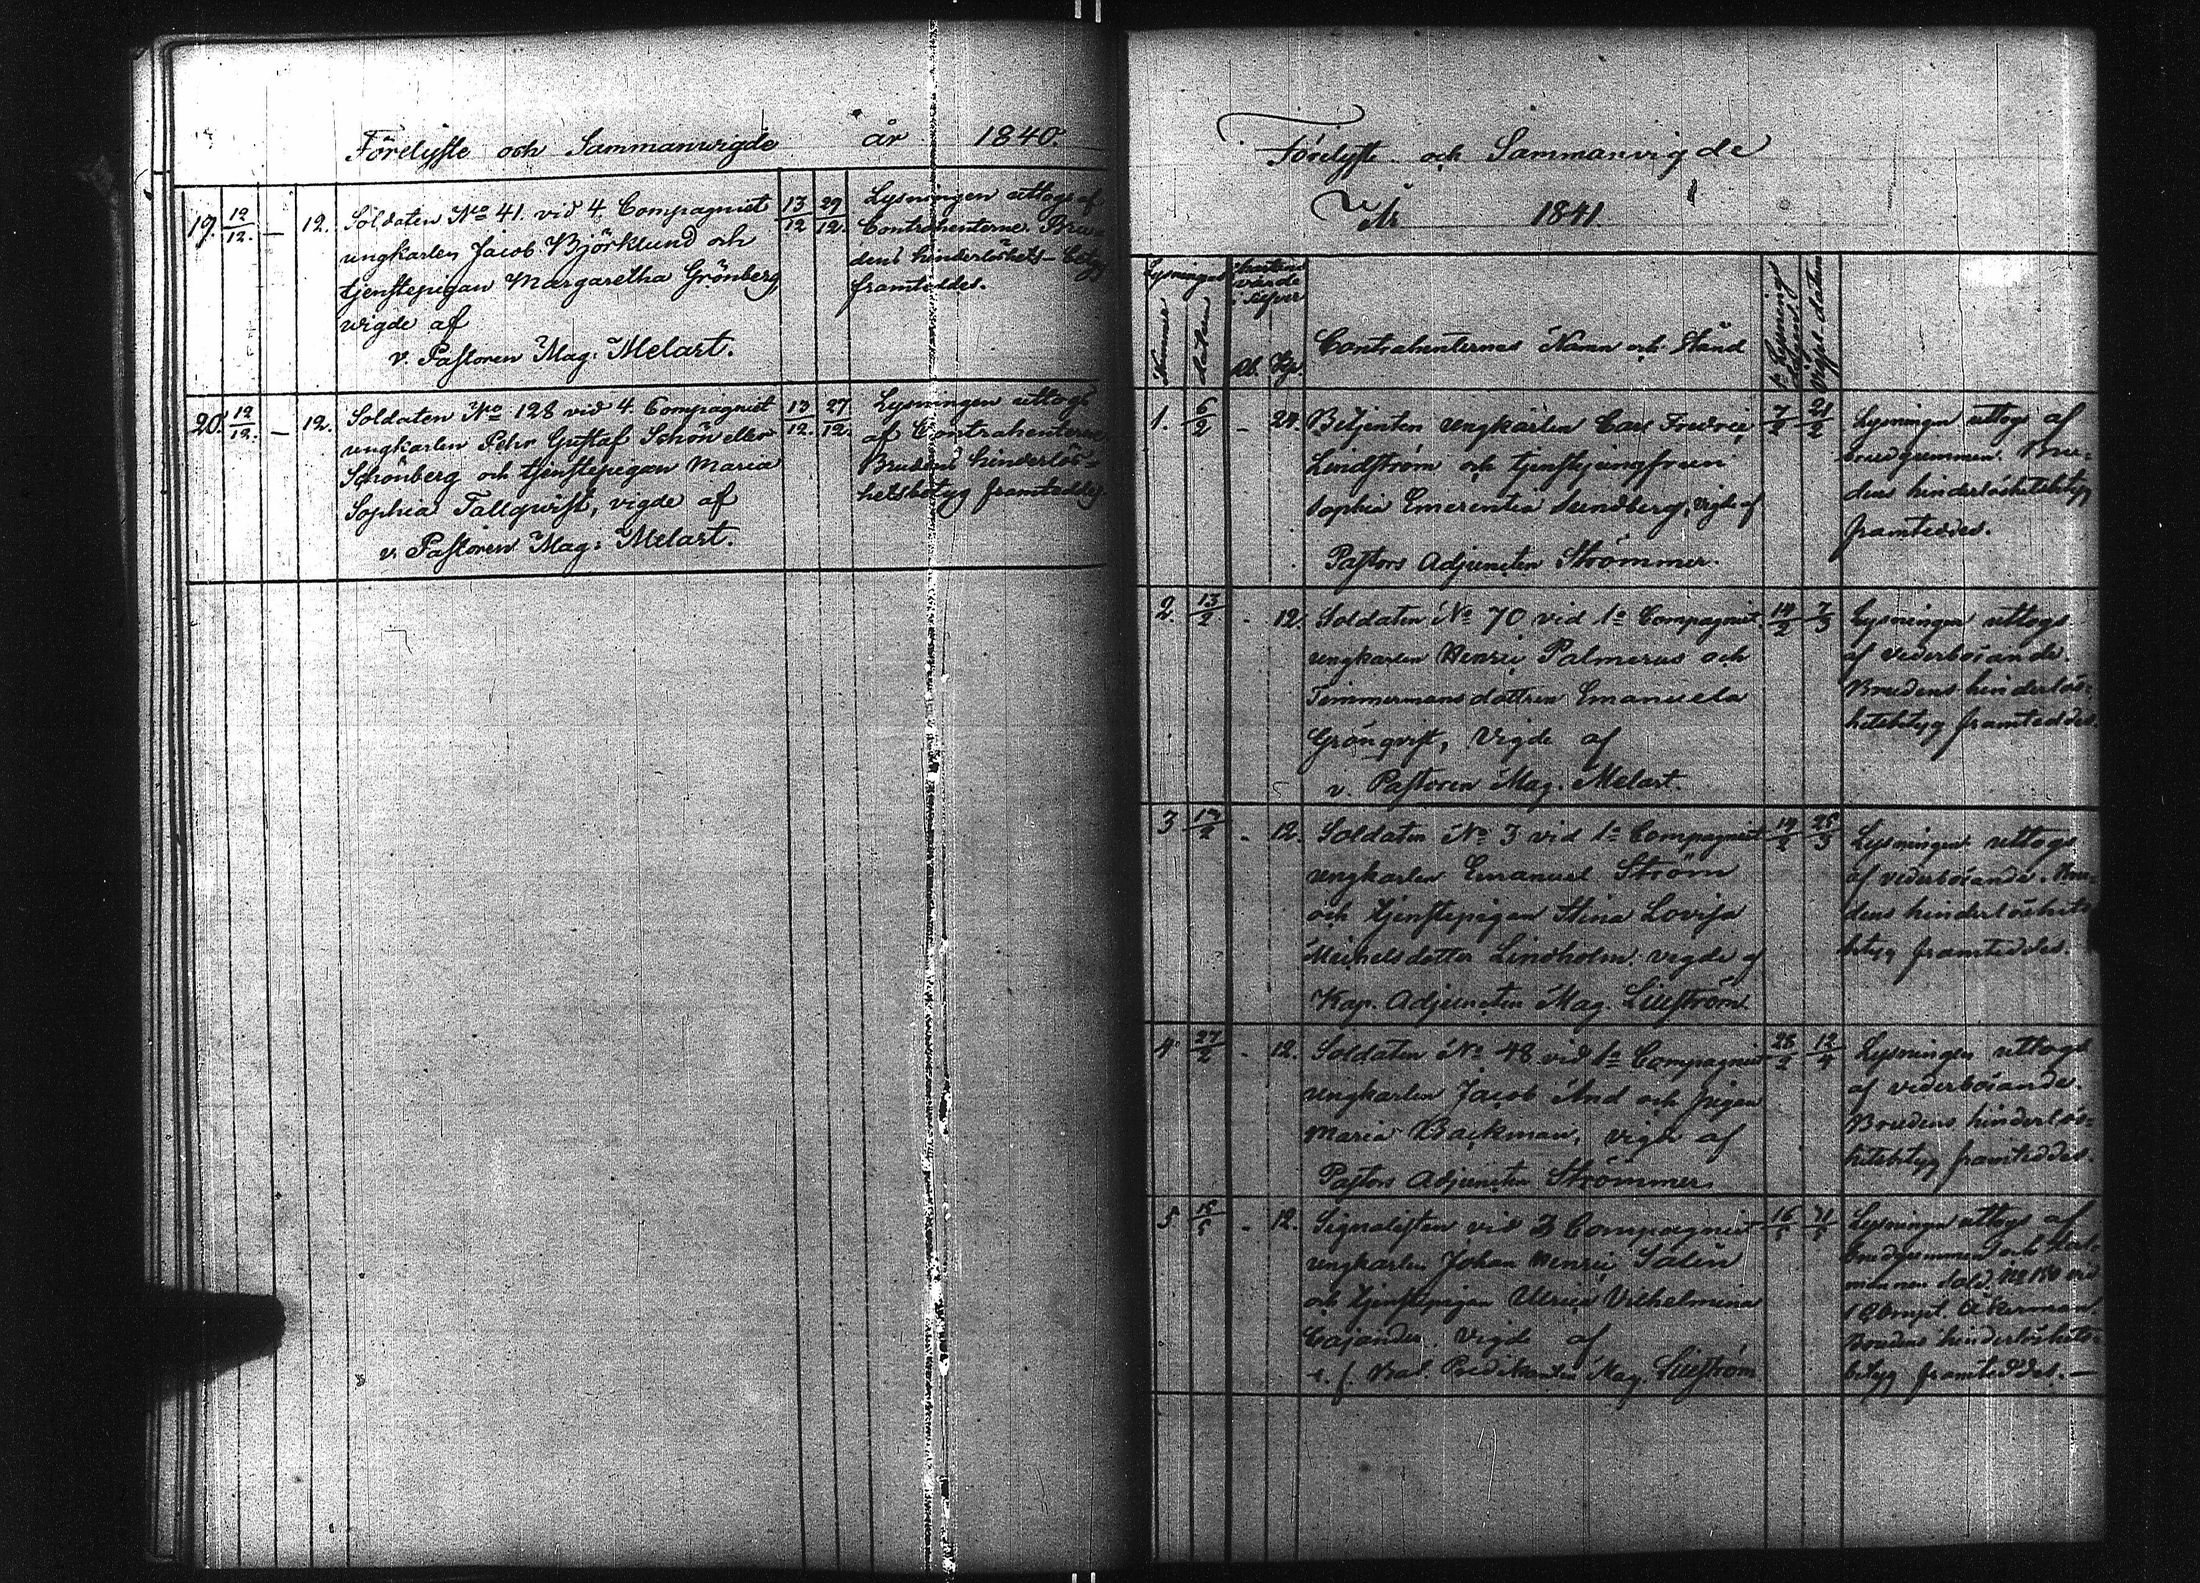 Förelyste och Sammanvigde år 1840.
19. 12/12. — 12. Soldaten No 41 vid 4 Compagniet 13/12 29/12. Lysningen uttogs af
ungkarlen Jacob Björklund och Contrahenterne. Bru-
tjenstepigan Margaretha Grönberg dens hinderlöshets-betyg
vigde af framteddes.
v. Pastoren Mag: Melart.
20. 12/12. — 12. Soldaten No 128 vid 4. Compagniet 13/12. 27/12. Lysningen uttogs
ungkarlen Pehr Gustaf Schön eller af Contrahenterne
Schönberg och tjenstepigan Maria Brudens hinderlös-
Sophia Tallqwist, vigde af hetsbetyg framteddes.
v. Pastoren Mag: Melart.
Förelyste och Sammanvigde
År 1841.
Lysnings värde i silfver
Nummer datum Kp. Contrahenternas Namn och Stånd 1a Lysnings datum
1. 6/2 - 24. Betjenten ungkarlen Carl Fredric 7/2 21/2 Lysningen uttogs af
Lindström och tjenstejungfrun brudgummen. Bru-
Sophia Emerentia Sundberg, vigde af dens hinderlöshetsbetyg
Pastors Adjuncten Strömmer. framteddes.
2. 13/2 - 12. Soldaten No 70 vid 1a Compagniet 14/2 7/3 Lysningen uttogs
ungkarlen Henric Palmerus och af vederbörande.
Timmermansdottren Emanuela Brudens hinderlös-
Grönqvist, vigde af hetsbetyg framteddes.
v. Pastoren Mag. Melart.
3 13/2 - 12. Soldaten No 3 vid 1a Compagniet 14/2 25/3 Lysningen uttogs
ungkarlen Emanuel Ström af vederbörande. Bru-
och tjenstepigan Stina Lovisa dens hinderlöshets
Michelsdotter Lindholm. vigde af betyg framteddes.
Kap. Adjuncten Mag. Liliström
4 27/2 - 12. Soldaten No 48 vid 1a Compagniet 28/2 12/4 Lysningen uttogs
ungkarlen Jacob And och pigan af vederbörande
Maria Backman, vigde af Brudens hinderlös-
Pastors Adjuncten Strömmer hetsbetyg framteddes.
5 15/5 - 12. Signalisten vid 3 Compagniet 16/5 31/5 Lysningen uttogs af
ungkarlen Johan Henric Salin brudgummen och
och tjenstepigan Ulrica Vilhelmina
Cajander. Vigde af 1 Comp. Åkerman
t. f. Bat. Predikanten Mag. Liliström Brudens hinderlöshets-
betyg framteddes. —